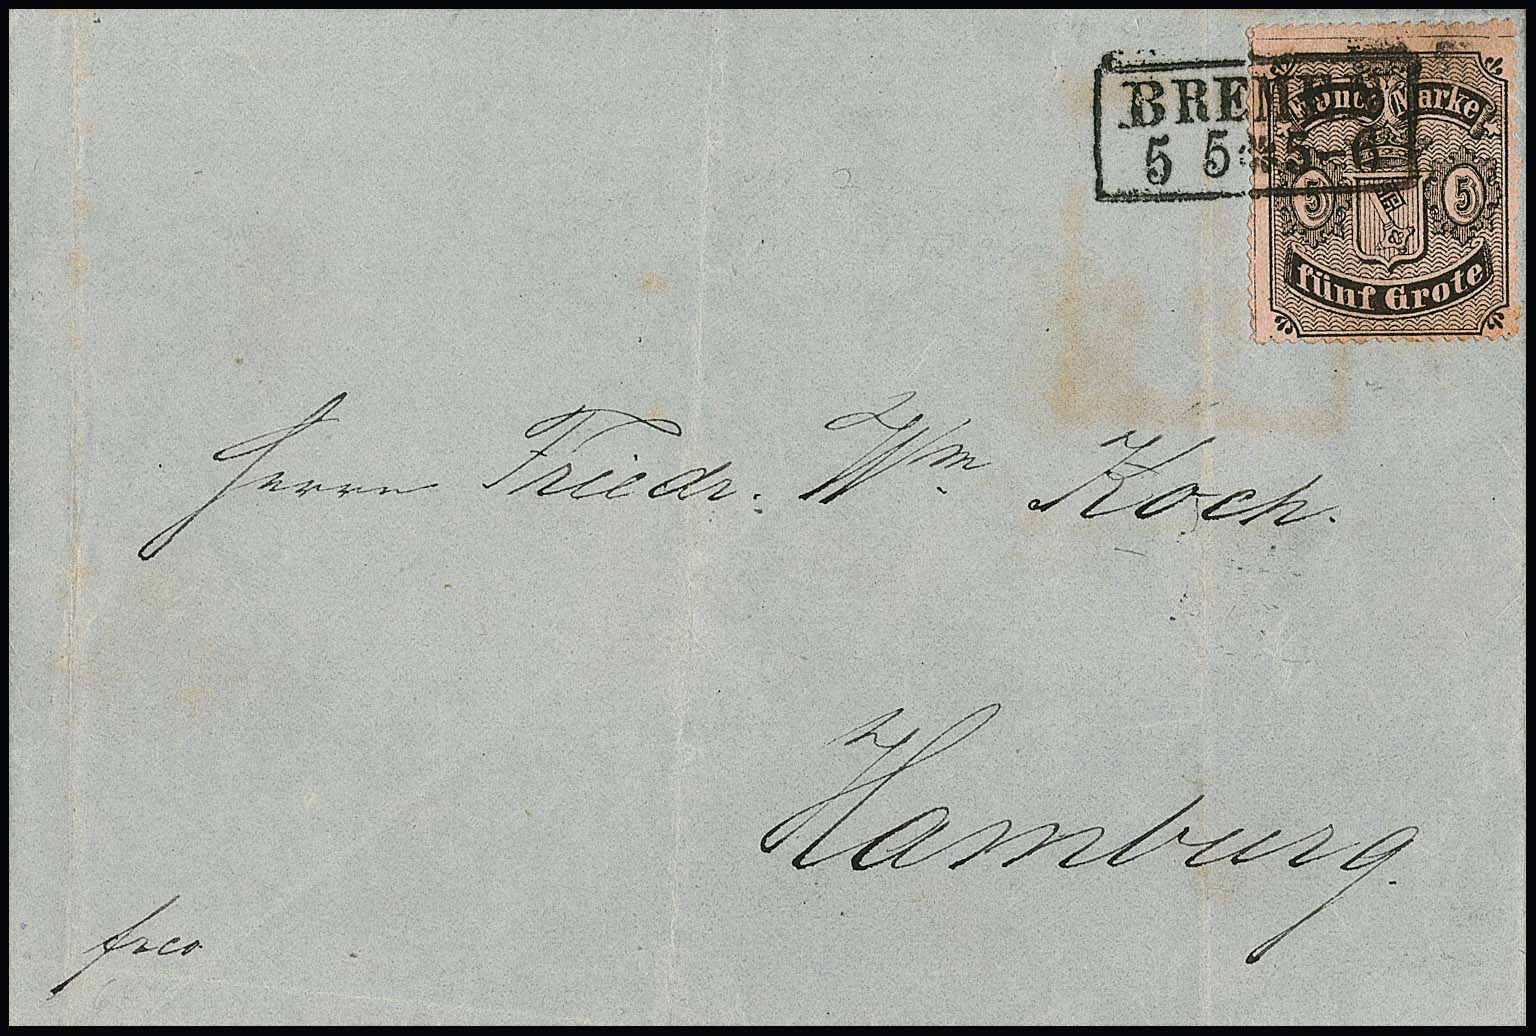 BREMEN
5 5 * 5-6
Franco Marke
5 5
fünf Grote
Herrn Friedr. Wm. Koch.
Hamburg.
frco